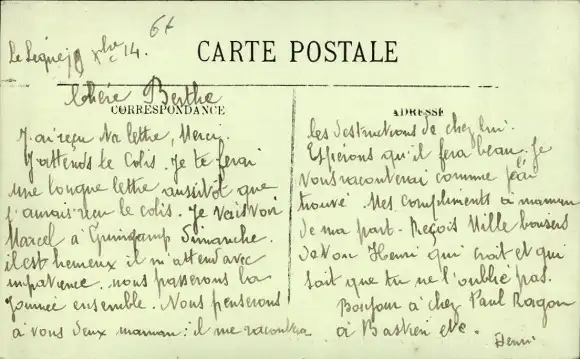 6f
Le Légué, 19 Xbre 14.
CARTE POSTALE
Chére Berthe
CORRESPONDANCE
J'ai reçu ta lettre, Merci.
J'attends le Colis. Je te ferai
une longue lettre aussitôt que
j'aurais reçu le colis. Je vais voir
Marcel à Guingamp Dimanche.
il est heureux il m'attend avec
impatience. nous passerons la
journée ensemble. Nous penserons
à vous deux maman: il me racontra
ADRESSE
les destructions de chez lui.
Espérons qu'il fera beau. Je
vous raconterai comme j'ai
trouvé. Mes compliments à maman
de ma part. Reçois Mille baisers
de ton Henri qui croit et qui
sait que tu ne l'oublie pas.
Bonjour à chez Paul Ragon
à Bastien etc.
Henri